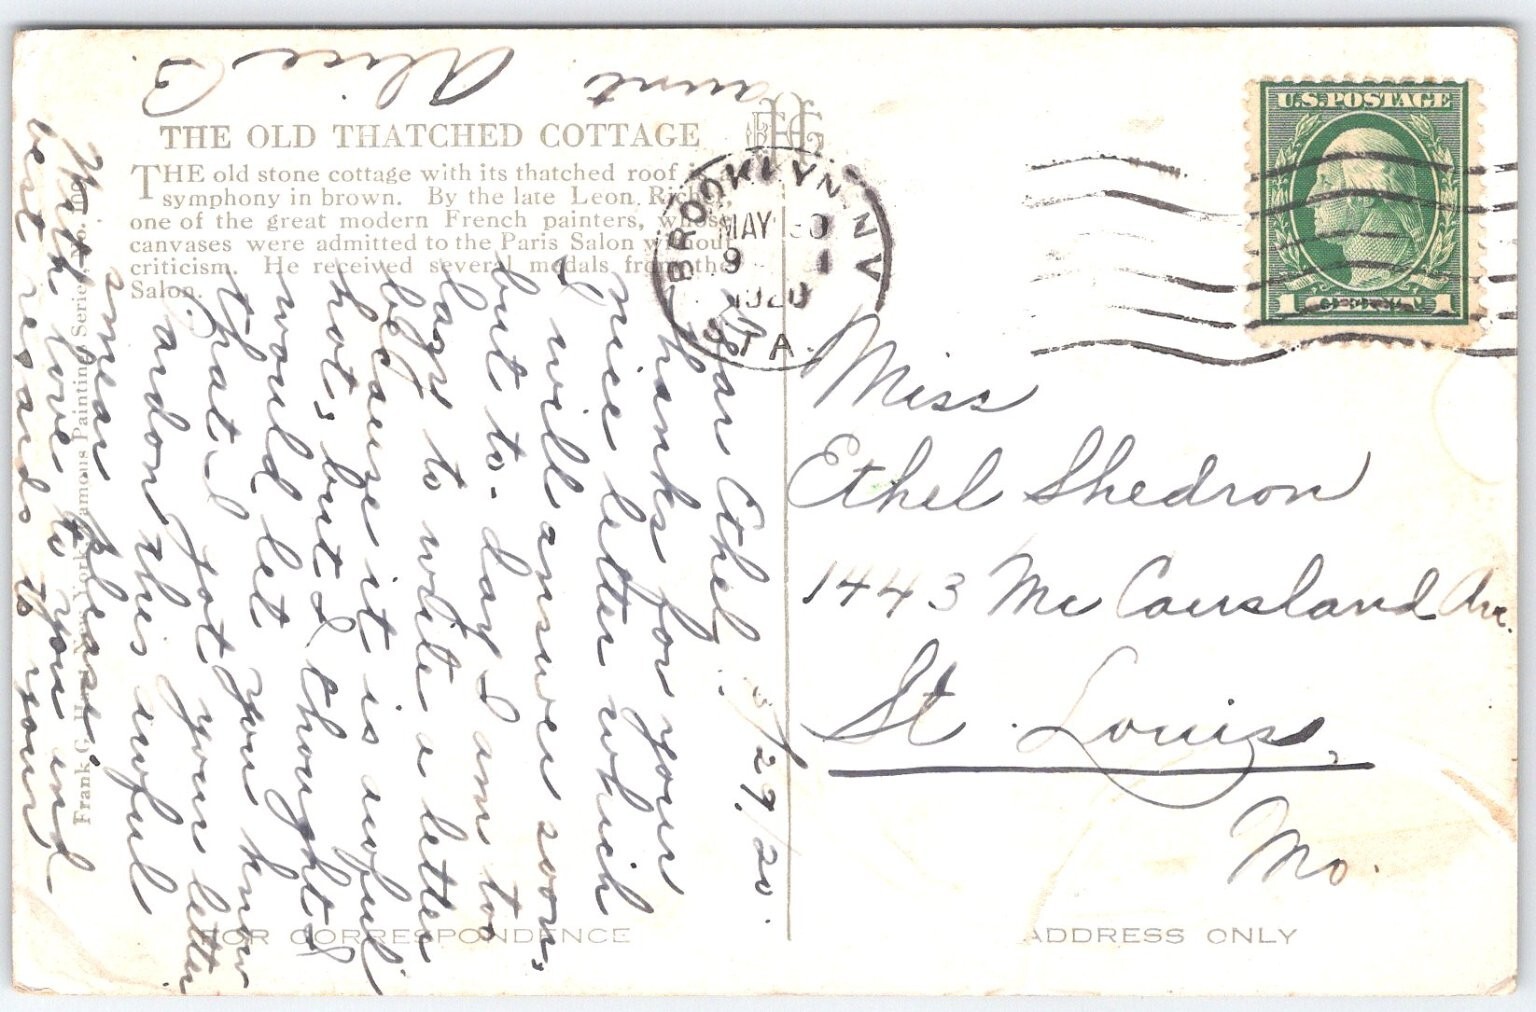 THE OLD THATCHED COTTAGE
THE old stone cottage with its thatched roof is a
symphony in brown. By the late Leon Rich
one of the great modern French painters, whose
canvases were admitted to the Paris Salon without
criticism. He received several medals from the
Salon.
Frank G. New York Famous Painting Series, No. 109
FOR CORRESPONDENCE
ADDRESS ONLY
BROOKLYN N.Y.
MAY 30
9
1920
STA.
U.S. POSTAGE
1 1
Miss
Ethel Shedron
1443 Mc Causland Ave.
St. Louis,
Mo.
5/29/20.
Dear Ethel
Thanks for your
nice letter which
I will answer soon,
but to-day I am too
lazy to write a letter
because it is awful
hot, but I thought I
would let you know
that I got your letter.
Pardon this awful
smear please.
With love to you and
best regards to your
aunt Alice B.